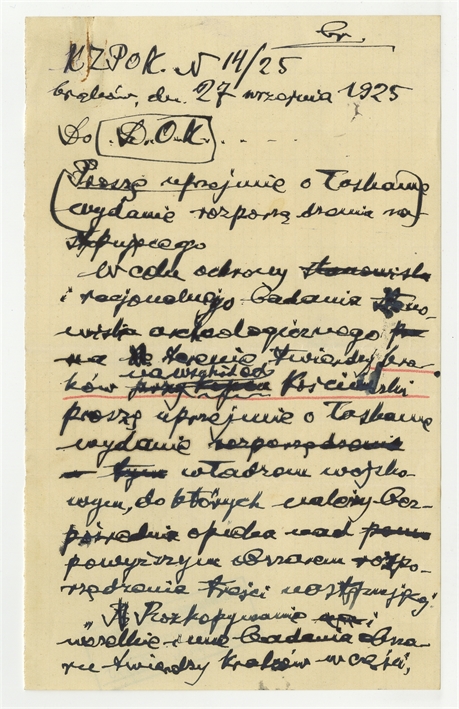 br.
KZPOK. N 14/25
Kraków, dn. 27 września 1925
Do D.O.K. . - - .
(Proszę uprzejmie o łaskawe)
wydanie rozporządzenia na-
stępującego
W celu ochrony stanowiska
i racjonalnego badania stano-
wiska archeologicznego
na terenie twierdzy Kra-
na wschód od
ków Kościuszki
proszę uprzejmie o łaskawe
wydanie rozporządzenia
władzom wojsko-
wym, do których należy bez-
pośrednia opieka nad
powyższym obszarem rozpo-
rządzenia treści następującej:
„Rozkopywanie i
wszelkie inne badania obsza-
ru twierdzy Kraków w części,